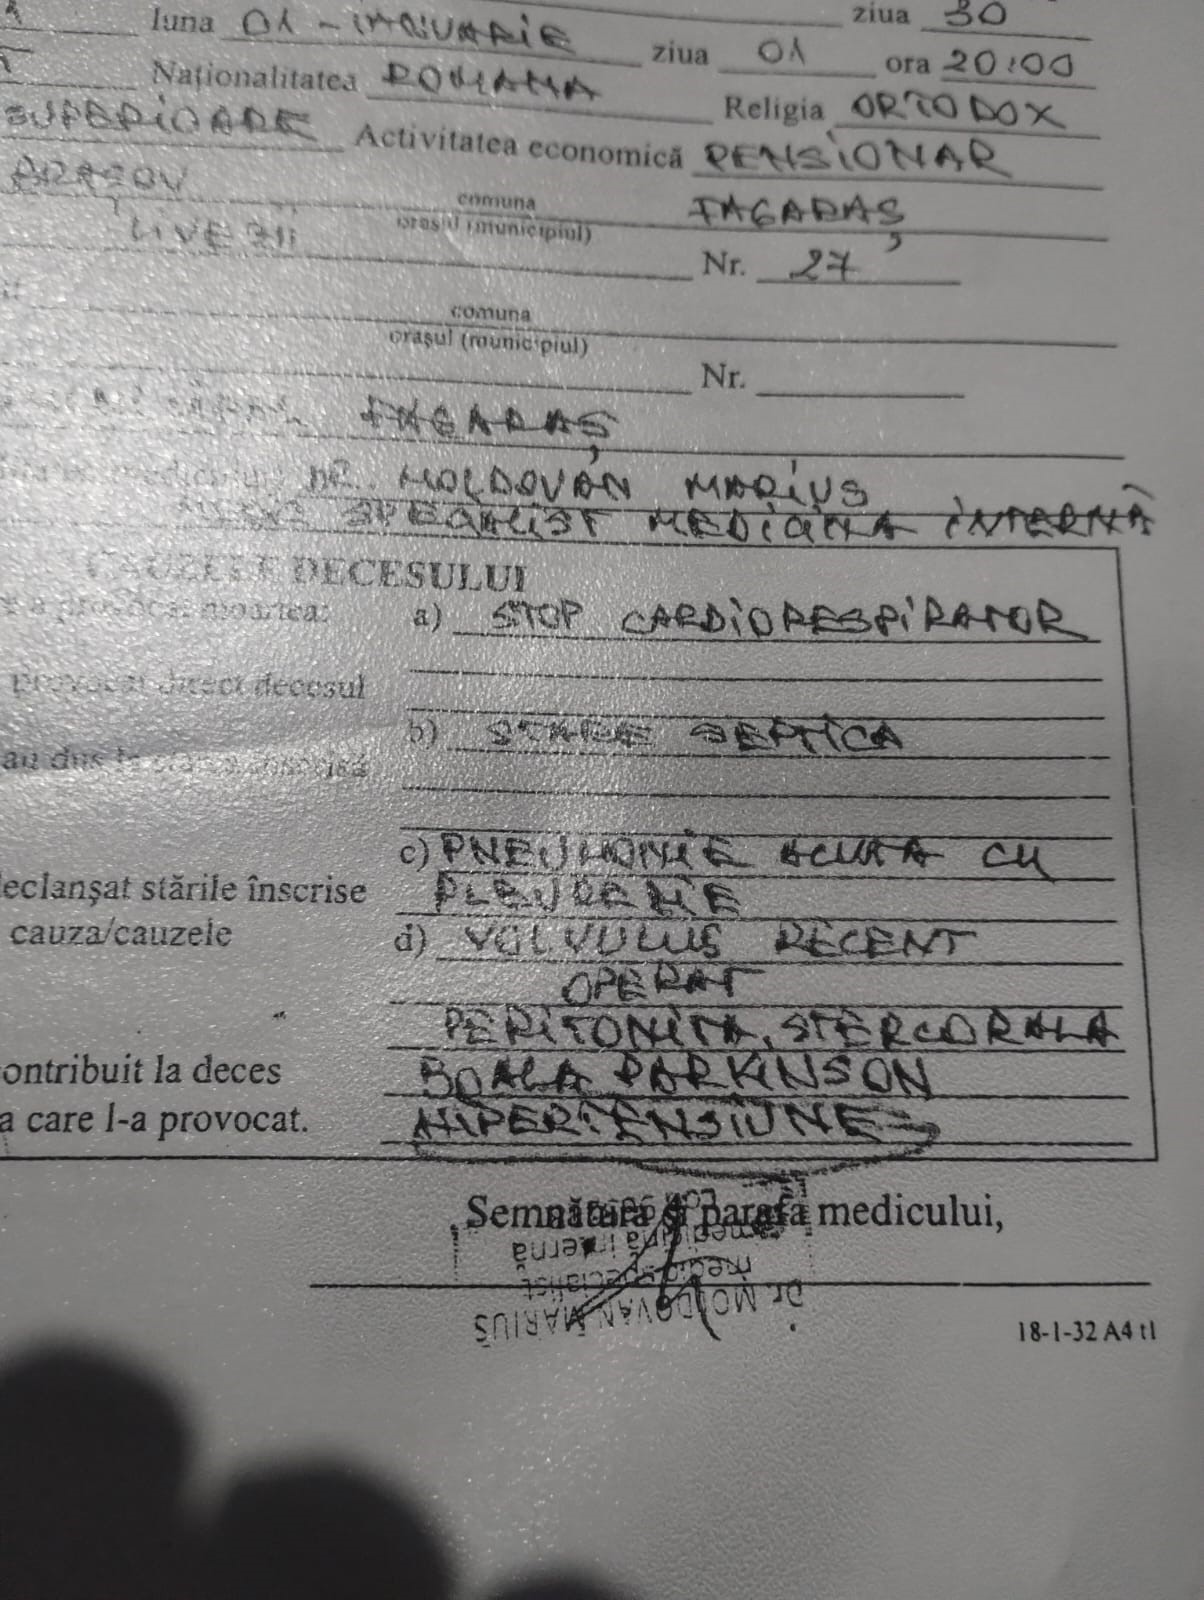 ziua 30
luna 01 - IANUARIE ziua 01 ora 20:00
Naţionalitatea ROMANA Religia ORTODOX
SUPERIOARE Activitatea economică PENSIONAR
BRASOV comuna FAGARAŞ
oraşul (municipiul)
LIVEZII Nr. 27
comuna
oraşul (municipiul)
Nr.
FAGARAŞ
MOLDOVAN MARIUS
SPECIALIST MEDICINA INTERNĂ
CAUZELE DECESULUI
a provocat moartea: a) STOP CARDIORESPIRATOR
provocat direct decesul
b) STARE SEPTICA
au dus la starea înscrisă
c) PNEUMONIE ACUTA CU
declanşat stările înscrise PLEUREZIE
cauza/cauzele d) VOLVULUS RECENT
OPERAT
PERITONITA, STERCORALA
ontribuit la deces BOALA PARKINSON
a care l-a provocat. HIPERTENSIUNE
Semnătura şi parafa medicului,
medicină internă
medic specialist
Dr. MOLDOVAN MARIUS
18-1-32 A4 t1